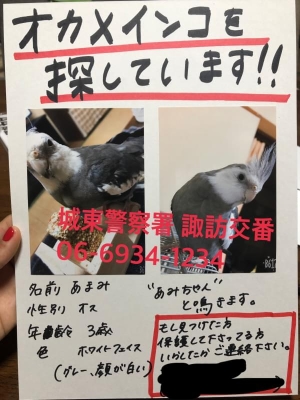 オカメインコを
探しています!!
城東警察署 諏訪交番
06-6934-1234
名前 あまみ
性別 オス
年齢 3歳
色 ホワイトフェイス
(グレー、顔が白い)
"あみちゃん"
と鳴きます。
もし見つけた方
保護して下さってる方
いらしたらご連絡下さい。